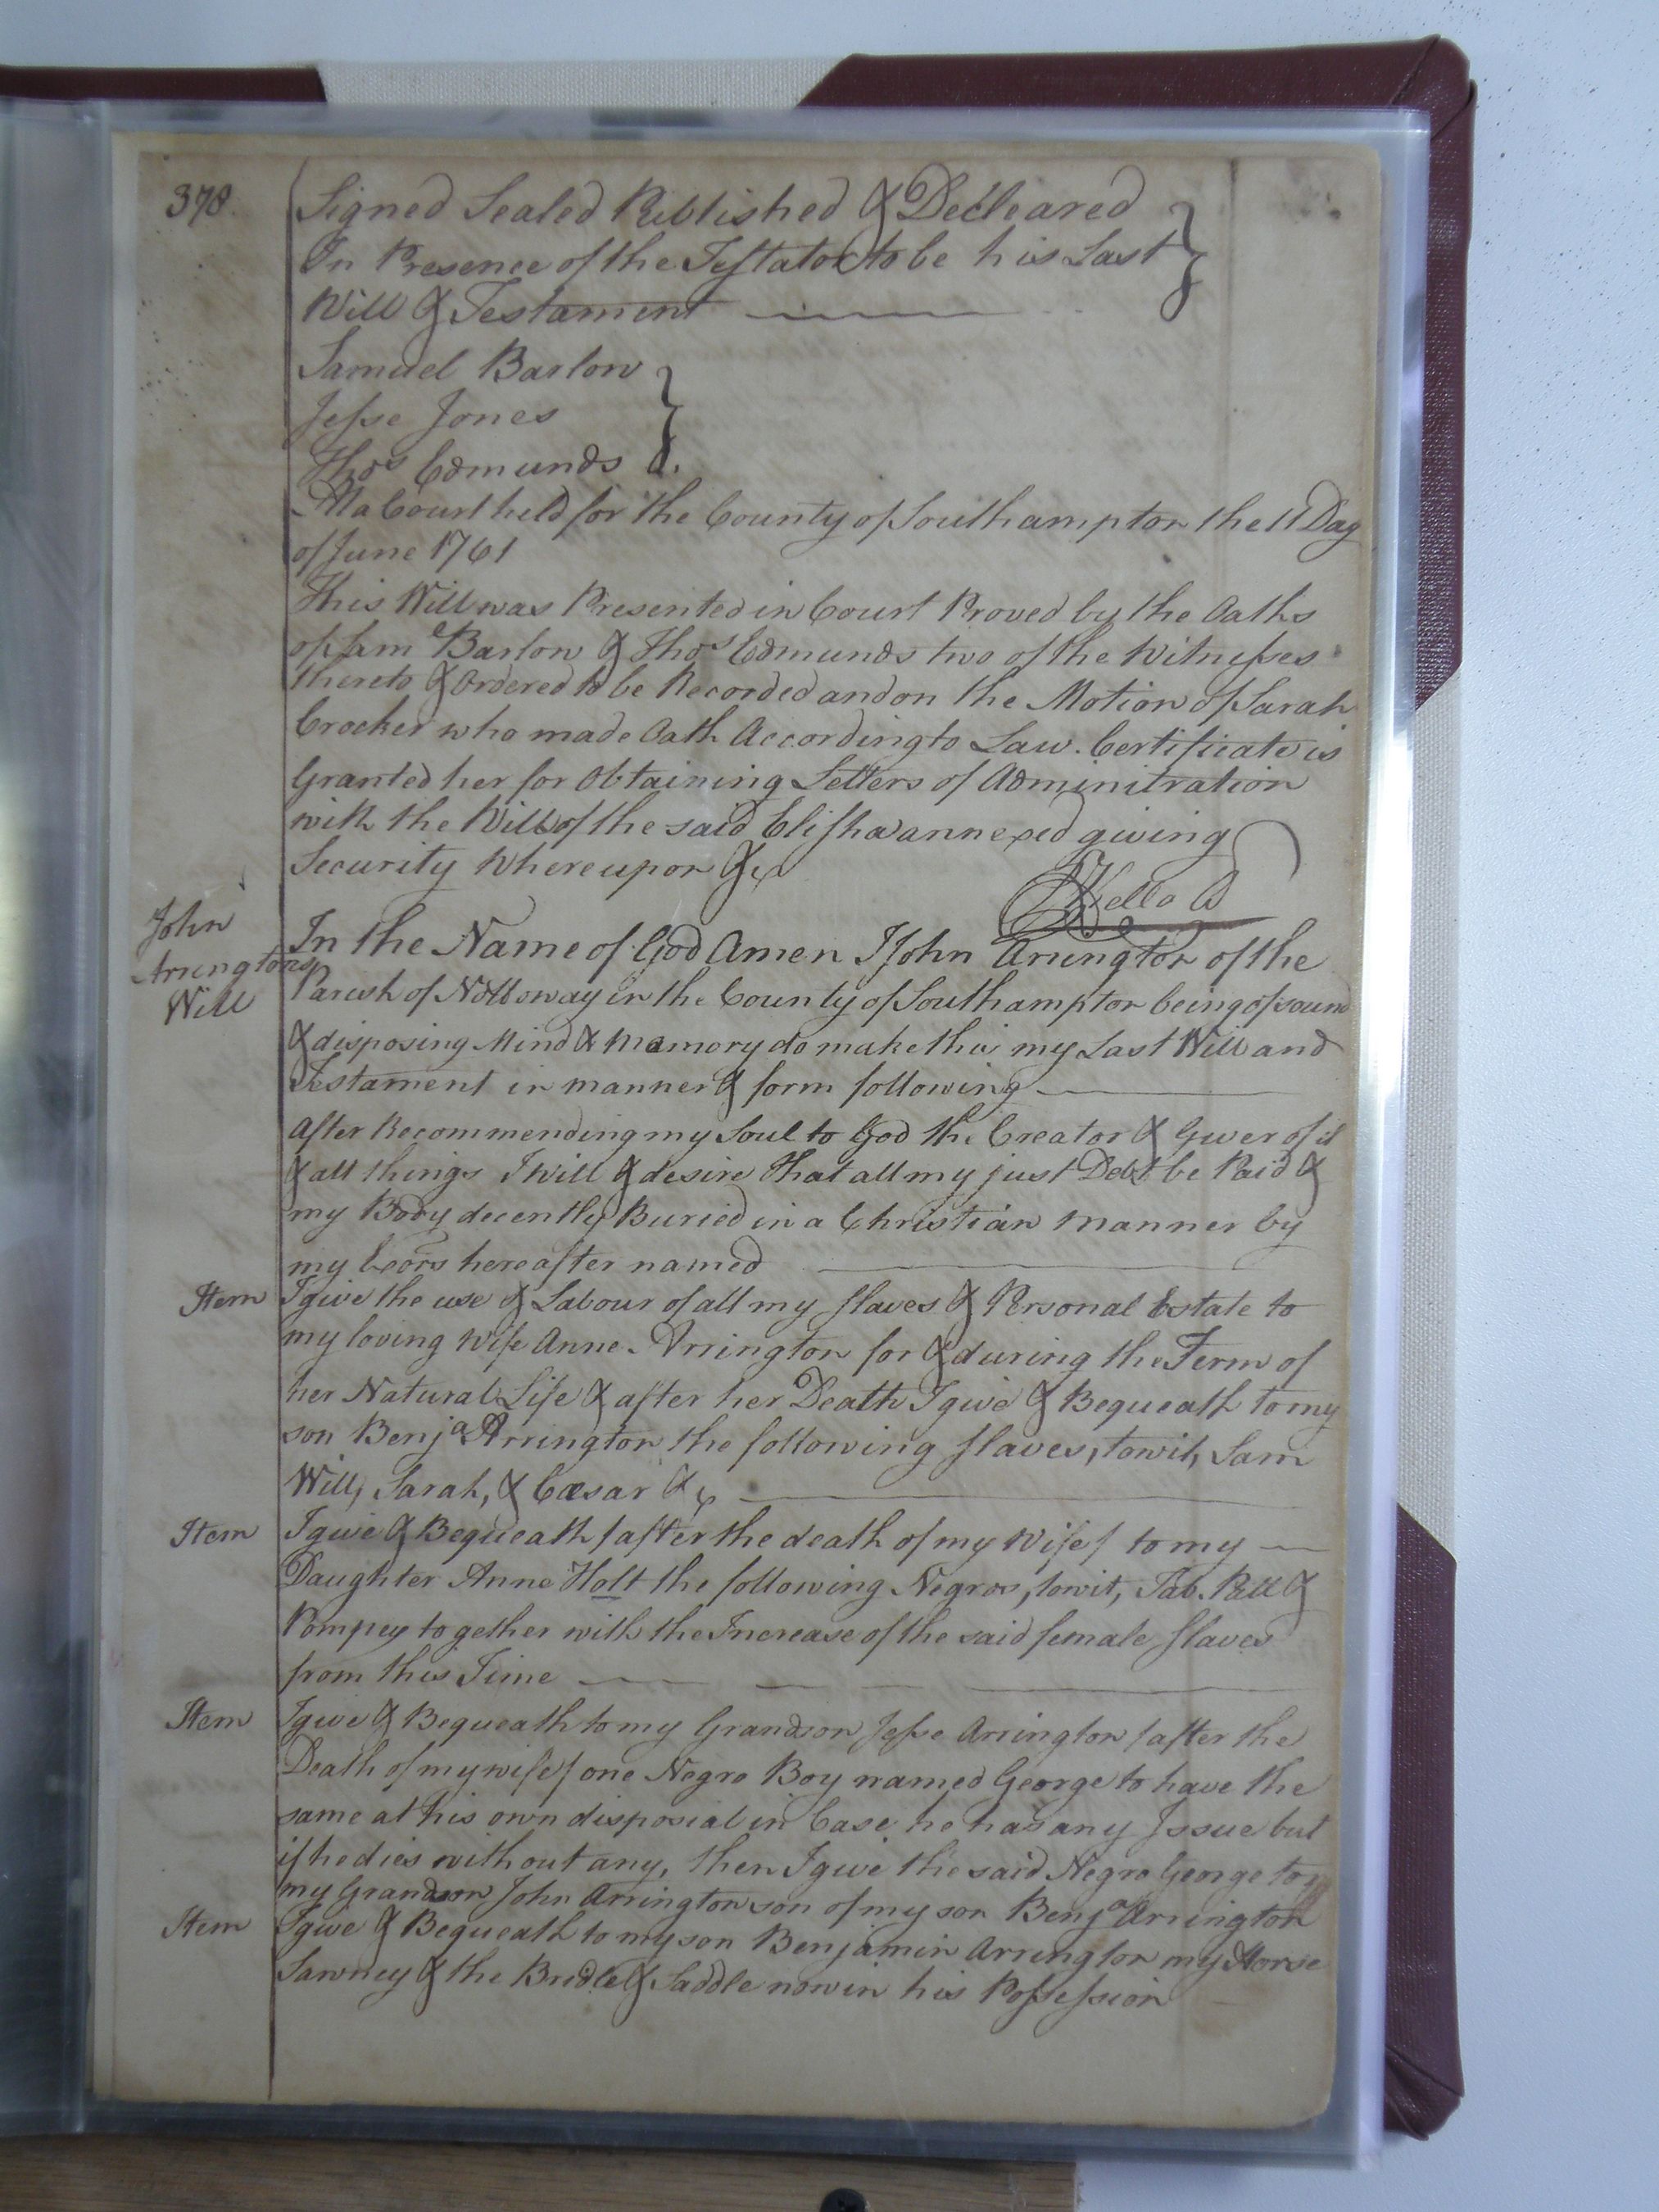 378.
Signed Sealed Published & Decleared
In Presence of the Testator to be his Last
Will & Testament
Samuel Barlow
Jesse Jones
Thos Edmunds
At a Court held for the County of Southampton the 11 Day
of June 1761
This Will was Presented in Court Proved by the Oaths
of Saml Barlow & Thos Edmunds two of the Witnesses
thereto & Ordered to be Recorded and on the Motion of Sarah
Crocker who made Oath According to Law. Certificate is
Granted her for Obtaining Letters of Adminitration
with the Will of the said Elisha annexed giving
Security Whereupon &c
Kello
John
Arringtons
Will
In the Name of God Amen I John Arrington of the
Parish of Nottoway in the County of Southampton being of sound
& disposing Mind & Memory do make this my Last Will and
Testament in manner & form following
After Recommending my Soul to God the Creator & Giver of it
& all things I will & desire that all my just Debt be Paid &
my Body decently Buried in a Christian manner by
my Exors hereafter named
Item I give the use & Labour of all my slaves & Personal Estate to
my loving Wife Anne Arrington for & during the Term of
her Natural Life & after her Death I give & Bequeath to my
son Benja Arrington the following slaves, towit, Sam
Will, Sarah, & Cæsar &c
Item I give & Bequeath /after the death of my Wife/ to my
Daughter Anne Holt the following Negros, towit, Tab. Patt &
Pompey together with the Increase of the said female slaves
from this Time
Item I give & Bequeath to my Grandson Jesse Arrington /after the
Death of my wife/ one Negro Boy named George to have the
same at his own disposial in Case he has any Issue but
if he dies without any, then I give the said Negro George to
my Grandson John Arrington son of my son Benja Arrington
Item I give & Bequeath to my son Benjamin Arrington my Horse
Sawney & the Bridle & Saddle now in his Possession